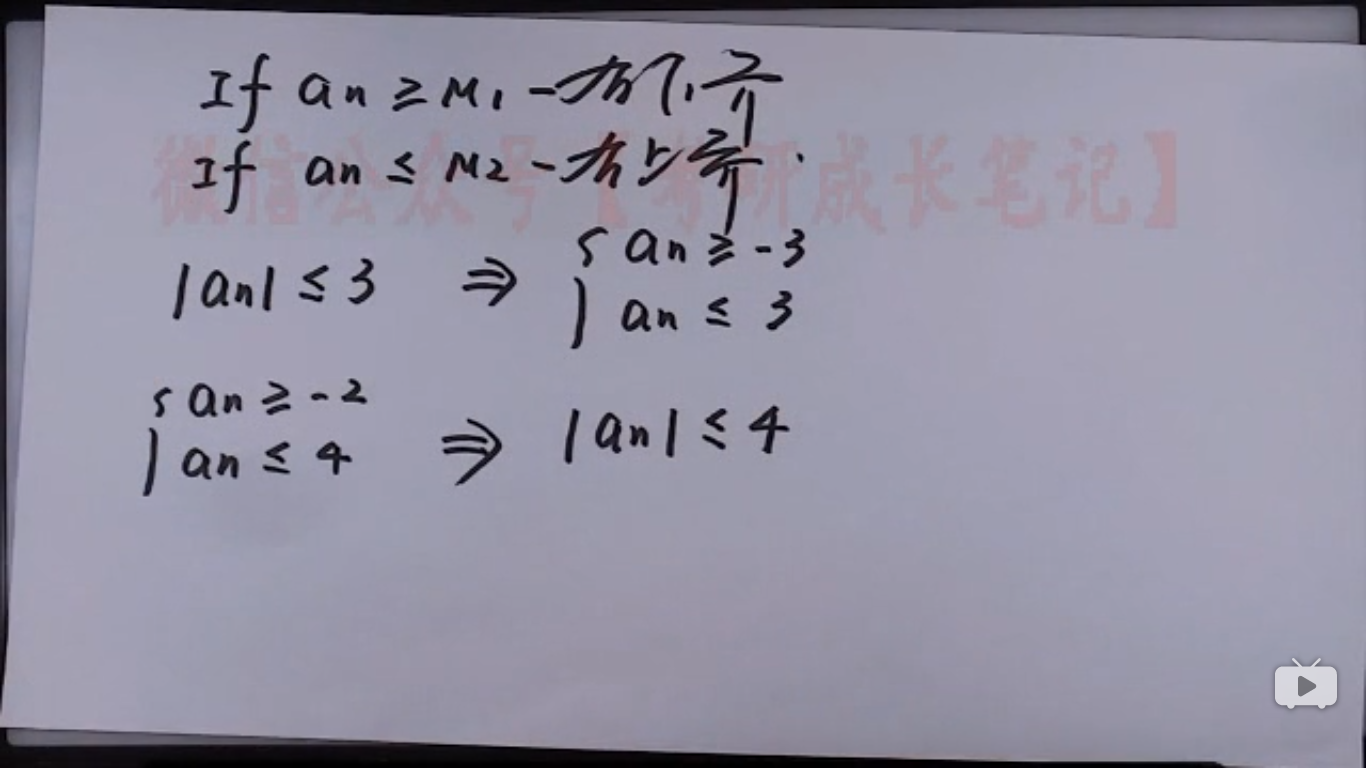 If an ≥ M1 - 有下界
If an ≤ M2 - 有上界.
微信公众号【考研成长笔记】
|an| ≤ 3 ⇒ { an ≥ -3
an ≤ 3
{ an ≥ -2
an ≤ 4 ⇒ |an| ≤ 4